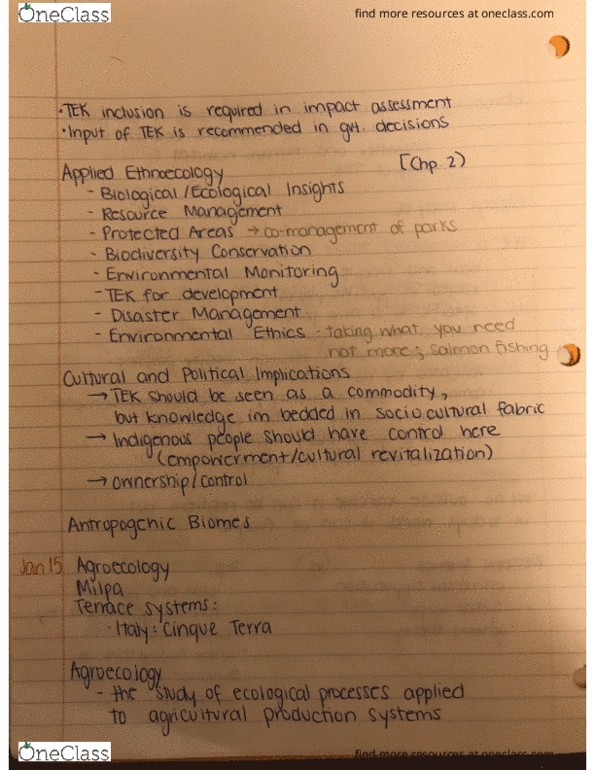 OneClass
find more resources at oneclass.com
• TEK inclusion is required in impact assessment
• Input of TEK is recommended in gvt. decisions
Applied Ethnoecology [Chp 2)
- Biological/Ecological Insights
- Resource Management
- Protected Areas → co-management of parks
- Biodiversity Conservation
- Environmental Monitoring
- TEK for development
- Disaster Management
- Environmental Ethics - taking what you need
not more; salmon fishing
Cultural and Political Implications
→ TEK should be seen as a commodity,
but knowledge imbedded in sociocultural fabric
→ Indigenous people should have control here
(empowerment/cultural revitalization)
→ ownership/control
Antropogenic Biomes
Jan 15 Agroecology
Milpa
Terrace systems:
- Italy: Cinque Terra
Agroecology
- the study of ecological processes applied
to agricultural production systems
OneClass
find more resources at oneclass.com